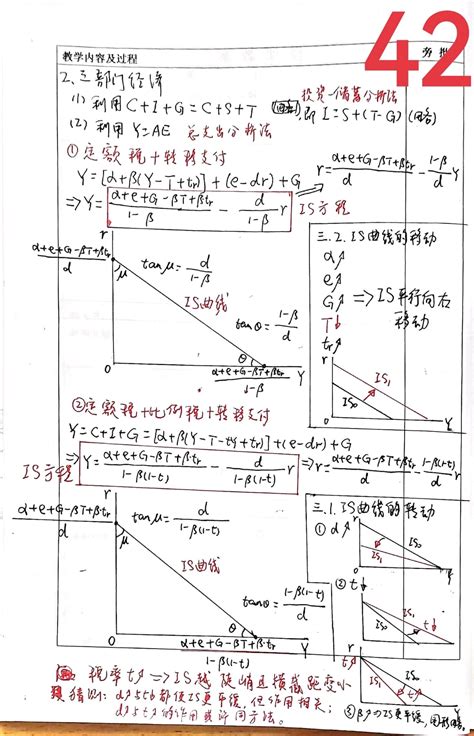 42
教学内容及过程
旁批
2、三部门经济
(1) 利用 C+I+G=C+S+T
投资—储蓄分析法
即 I=S+(T-G) (回答)
(2) 利用 Y=AE 总支出分析法
①定额税+转移支付
Y=[α+β(Y-T+tr)]+(e-dr)+G
⇒Y= (α+e+G-βT+βtr)/(1-β) - d/(1-β) r
r= (α+e+G-βT+βtr)/d - (1-β)/d Y
IS方程
r
(α+e+G-βT+βtr)/d
μ
tanμ= d/(1-β)
IS曲线
tanθ= (1-β)/d
θ
0
Y
(α+e+G-βT+βtr)/(1-β)
三.2.IS曲线的移动
α↗
e↗
G↗ ⇒IS平行向右移动
T↓
tr↗
r
IS₁
IS₀
0
Y
②定额税+比例税+转移支付
Y=C+I+G=[α+β(Y-T-tY+tr)]+(e-dr)+G
IS方程
⇒Y= (α+e+G-βT+βtr)/(1-β(1-t)) - d/(1-β(1-t)) r
⇒r= (α+e+G-βT+βtr)/d - (1-β(1-t))/d Y
r
(α+e+G-βT+βtr)/d
μ
tanμ= d/(1-β(1-t))
IS曲线
tanθ= (1-β(1-t))/d
θ
0
Y
(α+e+G-βT+βtr)/(1-β(1-t))
三.1.IS曲线的转动
① d↗
IS₀
IS₁
0
② t↓
IS₁
IS₀
t↓
r
t↗
IS₀
IS₁
税率t↗ ⇒IS越陡峭且横截距变小
猜测: d↗与t↓都使IS更平缓,但作用相反;
d↗与t↗的作用
同方法。
③β↗⇒IS更平缓,图形略。